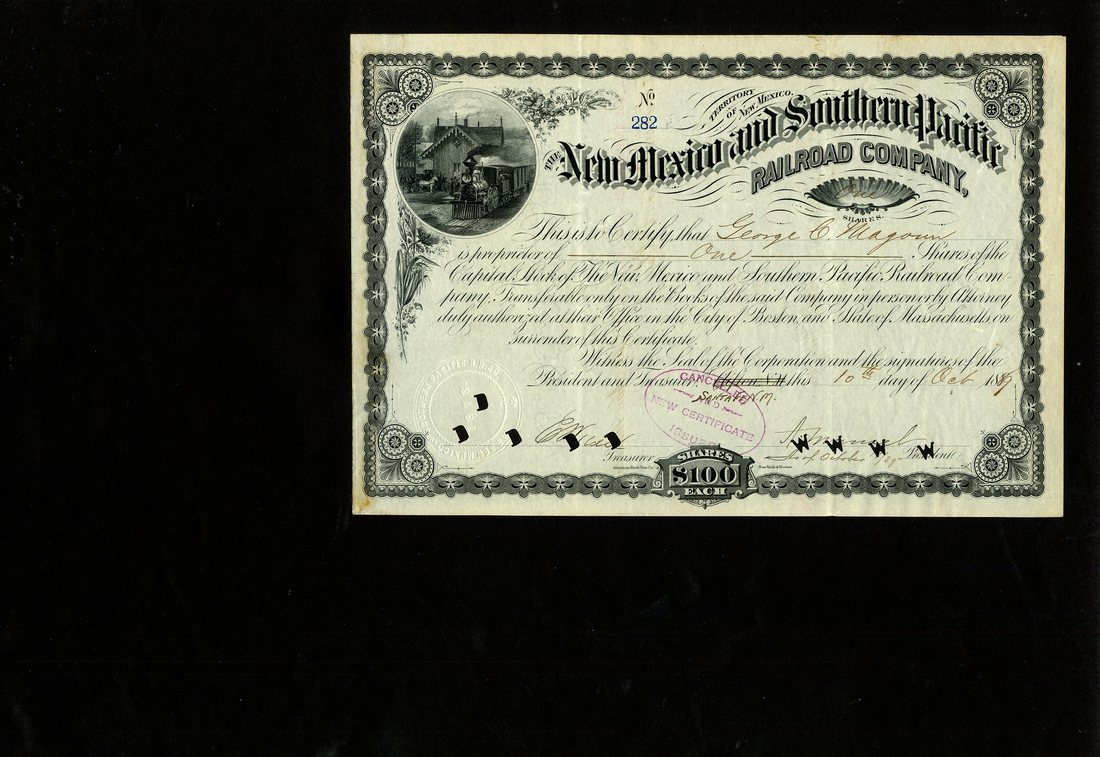 No
282
TERRITORY
OF NEW MEXICO.
THE New Mexico and Southern Pacific
RAILROAD COMPANY,
SHARES.
This is to Certify, that George C. Magoun
is proprietor of One Shares of the
Capital Stock of The New Mexico and Southern Pacific Railroad Com-
pany, Transferable only on the Books of the said Company in person or by Attorney
duly authorized at their Office in the City of Boston, and State of Massachusetts, on
surrender of this Certificate.
Witness the Seal of the Corporation and the signatures of the
President and Treasurer this 10th day of Oct 1889
Santa Fe N.M.
CANCELLED
AND
NEW CERTIFICATE
ISSUED
Treasurer
President
As of October
American Bank Note Co.
New York & Boston.
SHARES
$100
EACH